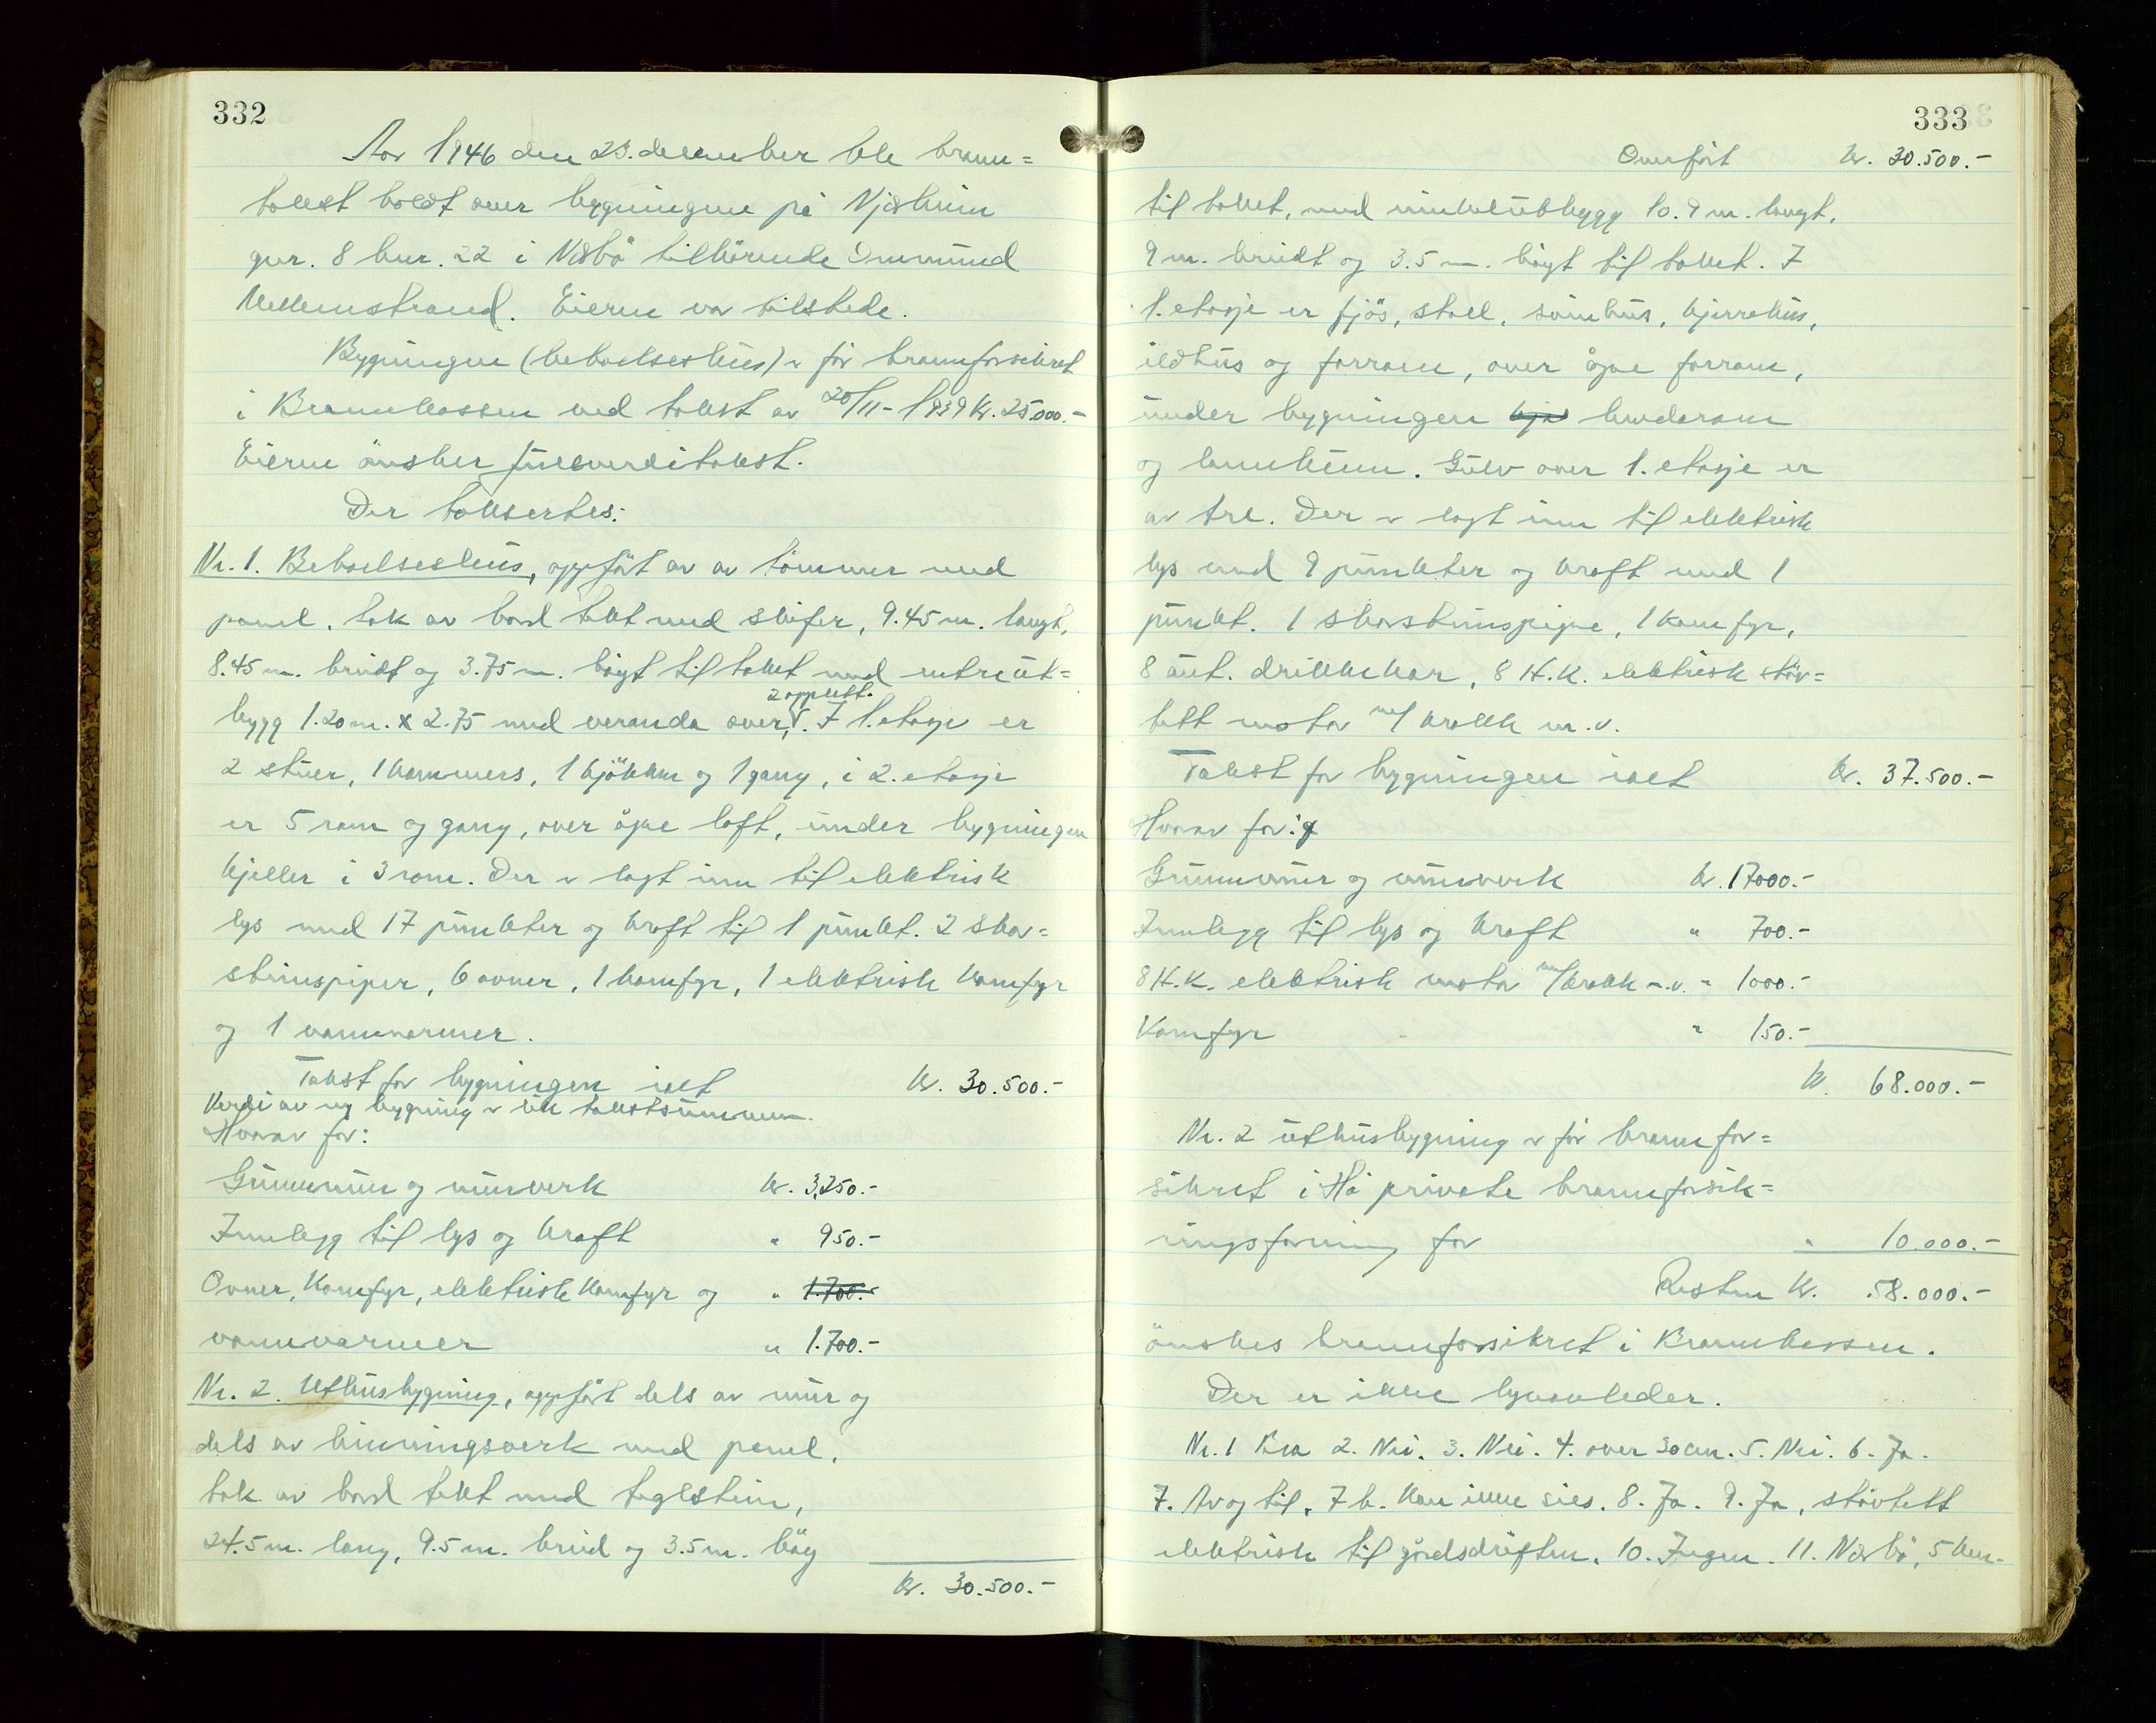 332
Aar 1946 den 23. december ble brann=
takst holdt over bygningene på Njåheim
gnr. 8 bnr. 22 i Nærbö tilhörende Ommund
Mellemstrand. Eieren var tilstede.
Bygningen (beboelseshus) er för brannforsikret
i Brannkassen ved takst av 20/11-1939 Kr. 25.000.-
Eieren önsker fullverditakst.
Der takseres:
Nr. 1. Beboelseshus, oppfört av av tömmer med
panel, tak av bord tekt med skifer, 9.45 m. langt,
8.45 m. bredt og 3.75 m. högt til taket med entreut=
2 opplett.
bygg 1.20 m. x 2.75 med veranda over, V. I 1. etasje er
2 stuer, 1 kammers, 1 kjökken og 1 gang, i 2. etasje
er 5 rom og gang, over åpne loft, under bygningen
kjeller i 3 rom. Der er lagt inn til elektrisk
lys med 17 punkter og kraft til 1 punkt. 2 skor=
steinspiper, 6 ovner, 1 komfyr, 1 elektrisk komfyr
og 1 vannvarmer.
Takst for bygningen ialt Kr. 30.500.-
Verdi av ny bygning er lik takstsummen.
Hvorav for:
Grunnmur og murverk kr. 3,250.-
Innlegg til lys og kraft " 950.-
Ovner, Komfyr, elektrisk Komfyr og " 1.700.-
vannvarmer " 1.700.-
Nr. 2. Uthusbygning, oppfört dels av mur og
dels av binningsverk med panel,
tak av bord tekt med teglstein,
24.5 m. lang, 9.5 m. breid og 3.5 m. hög
Kr. 30.500.-
333
Overfört kr. 30.500.-
til taket, med vinkelutbygg 10.9 m. langt,
9 m. breidt og 3.5 m. högt til taket. I
1. etasje er fjös, stall, svinehus, kjerrehus,
ildhus og forrom, over åpne forrom,
under bygningen kja landerom
og lannkum. Gulv over 1. etasje er
av tre. Der er lagt inn til elektrisk
lys med 9 punkter og kraft med 1
punkt. 1 skorsteinspipe, 1 komfyr,
8 aut. drikkekar, 8 H.K. elektrisk stöv=
tett motor m/ krakk m.v.
Takst for bygningen ialt Kr. 37.500.-
Hvorav for:
Grunnmur og murverk kr. 17000.-
Innlegg til lys og kraft " 700.-
8 H.K. elektrisk motor m/krakk m.v. " 1000.-
Komfyr " 150.-
kr. 68.000.-
Nr. 2 uthusbygning er för brannfor=
sikret i Hå private brannforsik=
ringsforening for " 10.000.-
Resten kr. 58.000.-
önskes brannforsikret i Brannkassen.
Der er ikke lynavleder.
Nr. 1 Bra 2. Nei. 3. Nei. 4. over 30 cm. 5. Nei. 6. Ja.
7. Av og til, 7 b. Kan ikke sies. 8. Ja. 9. Ja, stövtett
elektrisk til gårdsdriften. 10. Ingen. 11. Nærbö, 5 km.